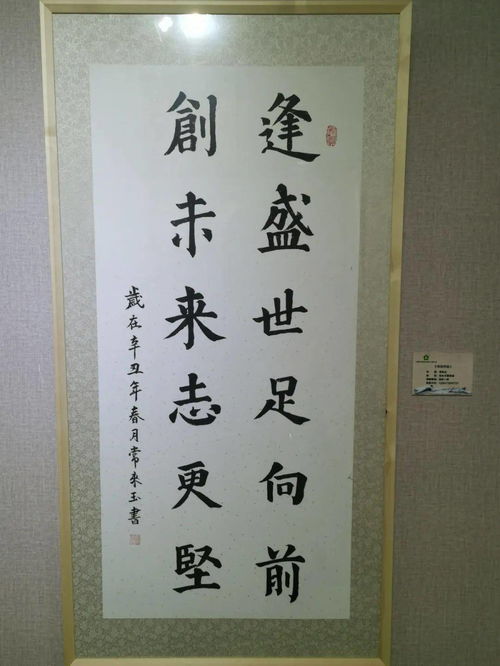 逢盛世足向前
創未来志更堅
歲在辛丑年春月常来玉書